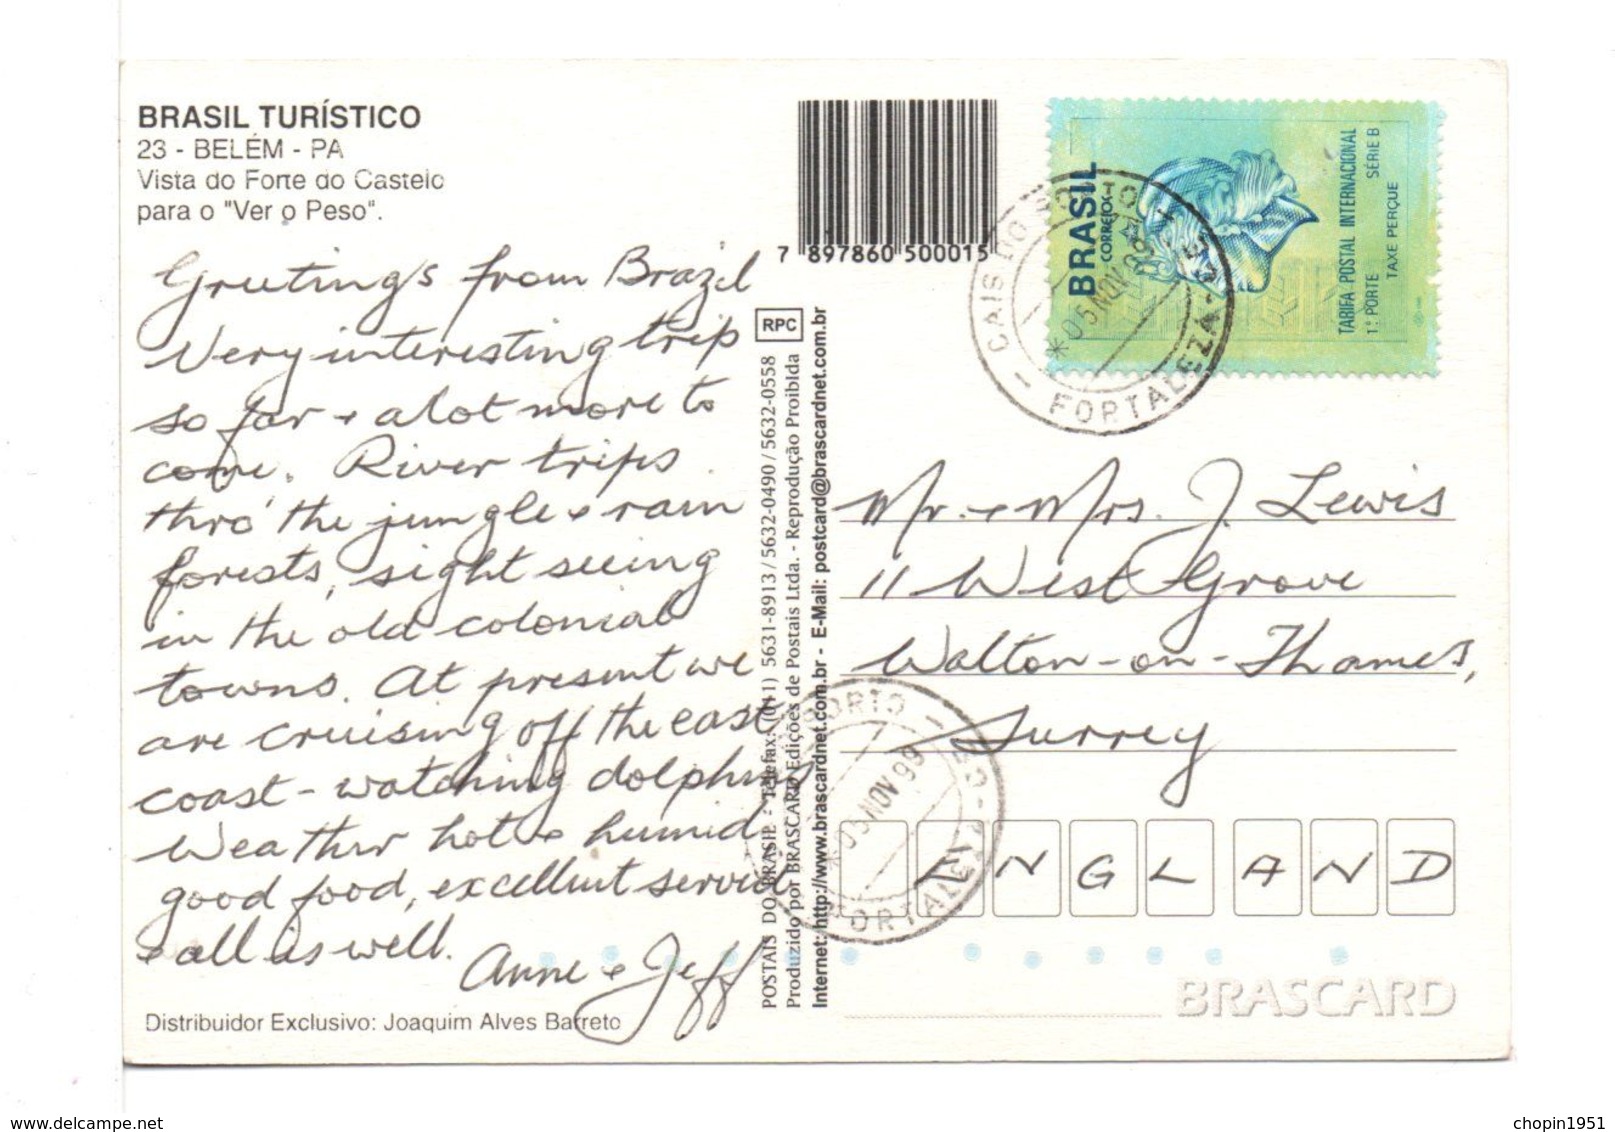 BRASIL TURÍSTICO
23 - BELÉM - PA
Vista do Forte do Castelo
para o "Ver o Peso".
Greetings from Brazil
Very interesting trip
so far + a lot more to
come. River trips
thro' the jungle + rain
forests, sight seeing
in the old colonial
towns. At present we
are cruising off the east
coast - watching dolphins
Weather hot + humid
good food, excellent service
+ all is well.
Anne + Jeff
Distribuidor Exclusivo: Joaquim Alves Barreto
7 897860 500015
RPC
POSTAIS DO BRASIL - Telefax: (011) 5631-8913 / 5632-0490 / 5632-0558
Produzido por BRASCARD Edições de Postais Ltda. - Reprodução Proibida
Internet: http://www.brascardnet.com.br - E-Mail: postcard@brascardnet.com.br
BRASIL
CORREIOS
TARIFA POSTAL INTERNACIONAL
1º PORTE SÉRIE B
TAXE PERÇUE
CAIS DO PORTO
*05 NOV 99
FORTALEZA-CE
Mr. + Mrs. J. Lewis
11 West Grove
Walton-on-Thames,
Surrey
ENGLAND
PORTO
*05 NOV 99
FORTALEZA-CE
BRASCARD
www.delcampe.net
chopin1951